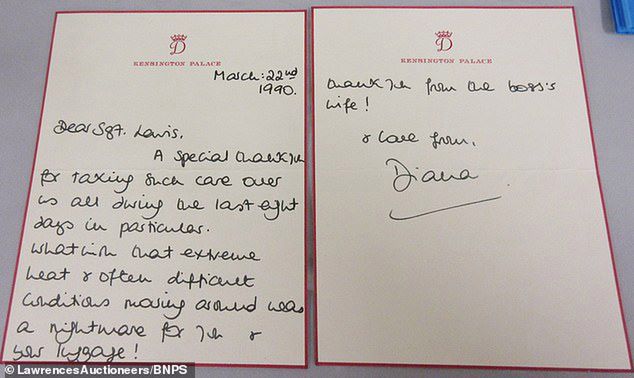 D
KENSINGTON PALACE
March: 22nd
1990.
Dear Sgt. Lewis,
A special thank you
for taking such care over
us all during the last eight
days in particular.
What with that extreme
heat & often difficult
conditions moving around was
a nightmare for you &
your luggage!
D
KENSINGTON PALACE
thank you from the boss's
wife!
& love from,
Diana
© LawrencesAuctioneers/BNPS